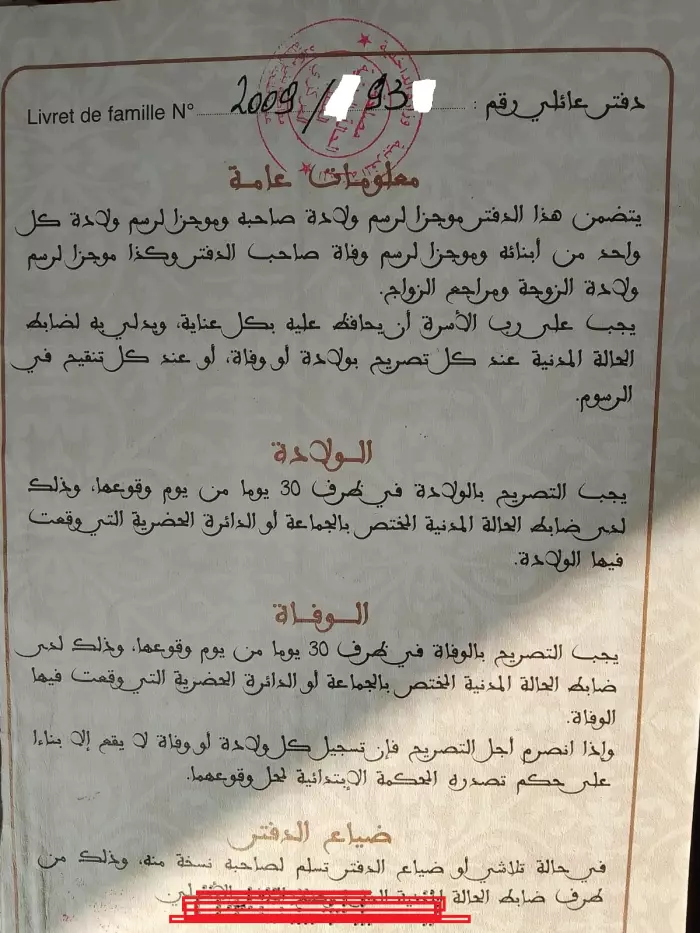 Livret de famille N° 2009 / 93 دفتر عائلي رقم :
معلومات عامة
يتضمن هذا الدفتر موجزا لرسم ولادة صاحبه وموجزا لرسم ولادة كل
واحد من أبنائه وموجزا لرسم وفاة صاحب الدفتر وكذا موجزا لرسم
ولادة الزوجة ومراجع الزواج.
يجب على رب الأسرة أن يحافظ عليه بكل عناية، ويدلي به لضابط
الحالة المدنية عند كل تصريح بولادة أو وفاة، أو عند كل تنقيح في
الرسوم.
الولادة
يجب التصريح بالولادة في ظرف 30 يوما من يوم وقوعها، وذلك
لدى ضابط الحالة المدنية المختص بالجماعة أو الدائرة الحضرية التي وقعت
فيها الولادة.
الوفاة
يجب التصريح بالوفاة في ظرف 30 يوما من يوم وقوعها، وذلك لدى
ضابط الحالة المدنية المختص بالجماعة أو الدائرة الحضرية التي وقعت فيها
الوفاة.
وإذا انصرم أجل التصريح فإن تسجيل كل ولادة أو وفاة لا يقع إلا بناءا
على حكم تصدره المحكمة الإبتدائية لمحل وقوعهما.
ضياع الدفتر
في حالة تلاشي أو ضياع الدفتر تسلم لصاحبه نسخة منه، وذلك من
طرف ضابط الحالة